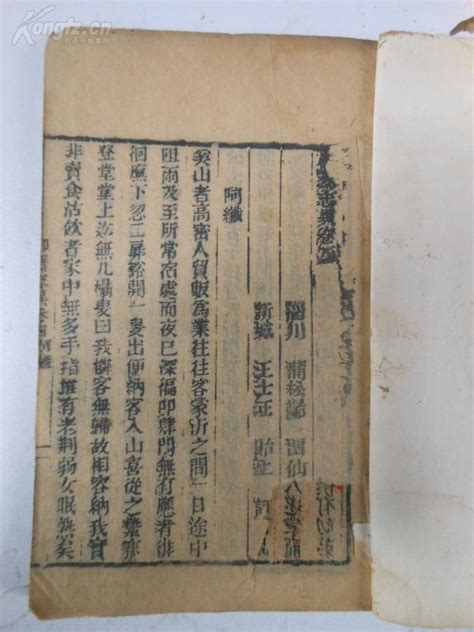 Kongfz.cn
志異卷
淄川 蒲松齡 留仙
新城 王士正 貽上
阿纖
奚山者高密人貿販為業往往客蒙沂之間一日途中
阻雨及至所常宿處而夜已深徧叩肆門無有應者徘
徊廡下忽二扉豁開一叟出便納客入山喜從之縶蹇
登堂堂上迄無几榻叟曰我憐客無歸故相容納我實
非賣食沽飲者家中無多手指惟有老荊弱女眠熟矣